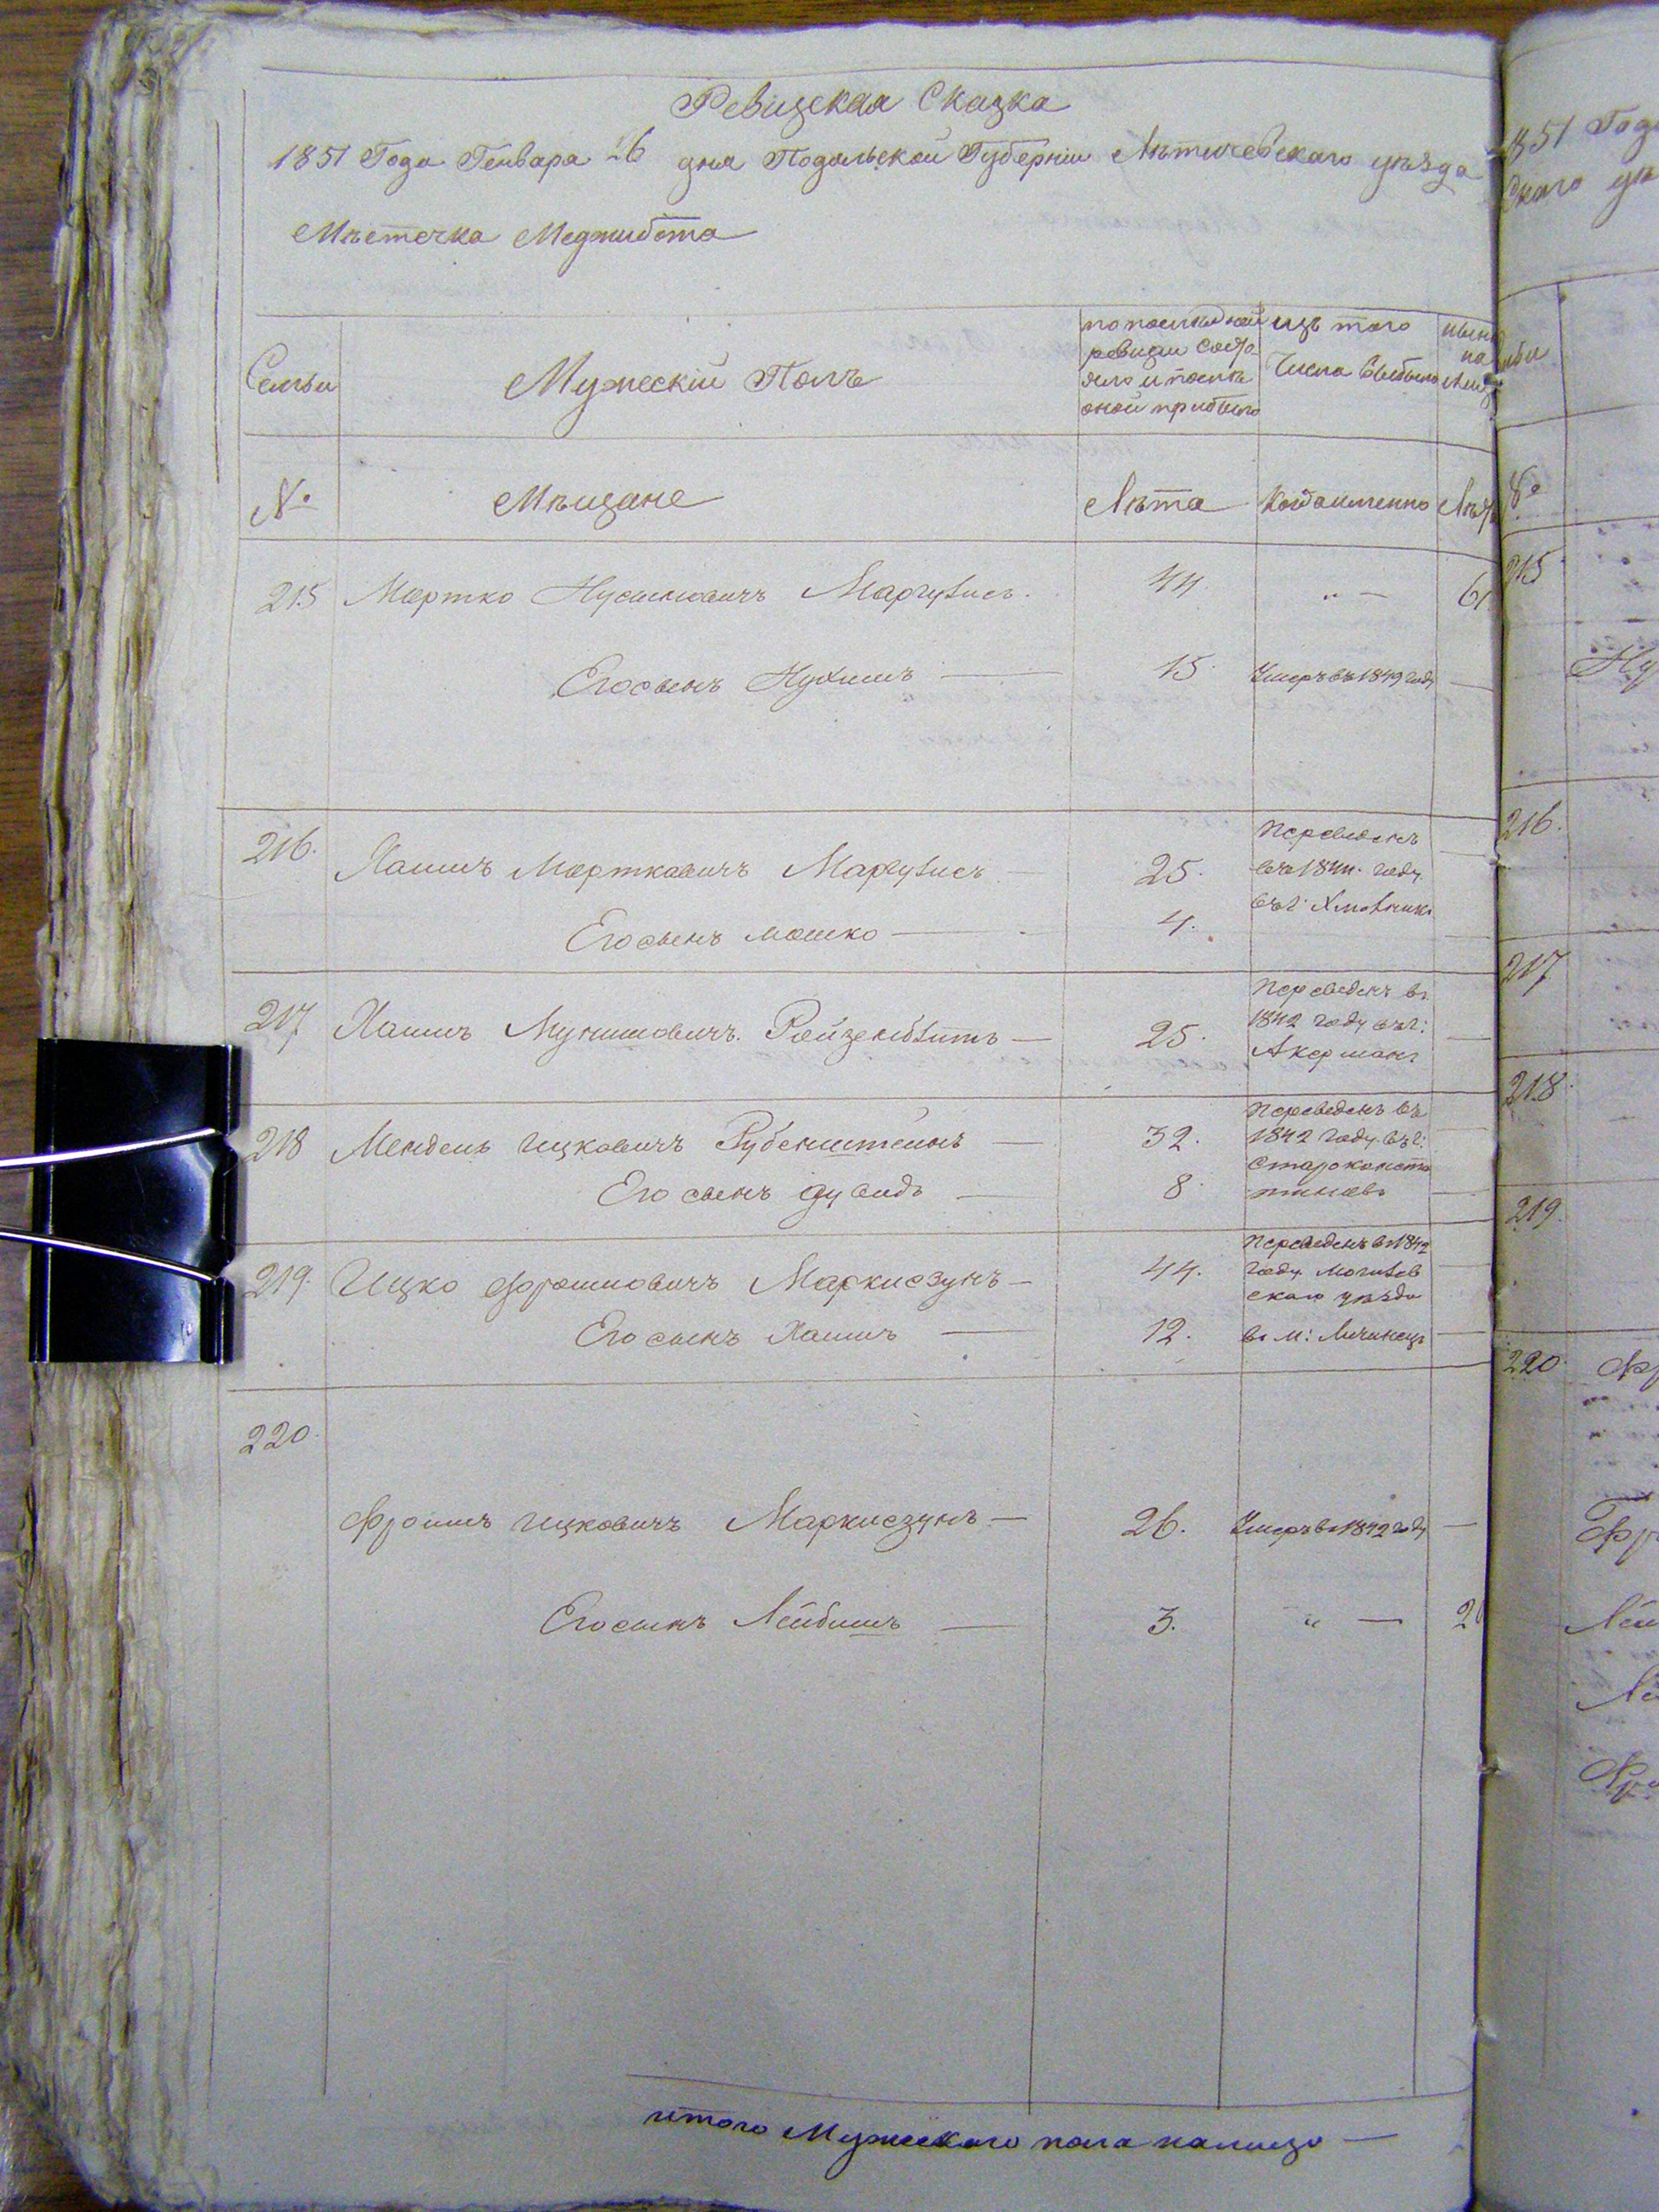 Ревизская Сказка
1851 Года Генваря 26 дня Подольской Губерніи Лѣтичевскаго уѣзда
Мѣстечка Меджибожа
Семьи
Мужескій Полъ
по последней ревизіи состояло и послѣ оной прибыло
изъ того числа выбыло
ныне на лицо
№
Мѣщане
Лѣта
Когда именно
Лѣта
215 Мортко Нусимовичъ Маргулисъ. 44 „ — 61
Его сынъ Нухимъ — 15. Умеръ въ 1849 году —
216. Хаимъ Мортковичъ Маргулисъ — 25. Переведенъ въ 1844. году въ г: Хмельникъ
Его сынъ Мошко — 4.
217 Хаимъ Мунишовичъ. Ройзенблитъ — 25. Переведенъ въ 1842 году въ г: Акерманъ —
218 Мендель Ицковичъ Рубенштейнъ — 32. Переведенъ въ 1842 году въ г: Староконстантиновъ
Его сынъ Дувидъ — 8. —
219. Ицко Фроимовичъ Маркисзунъ — 44. Переведенъ въ 1842 году Могилевскаго уѣзда
Его сынъ Хаимъ — 12. въ м: Лучинецъ —
220.
Фроимъ Ицковичъ Маркисзунъ — 26. Умеръ въ 1842 году —
Его сынъ Лейбишъ — 3. „ — 20
итого Мужескаго пола налицо —
1851 Года
№
215
216.
217
218.
219.
220.